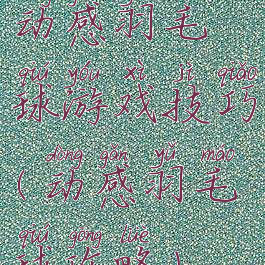 动感羽毛
qiú yóu xì jì qiǎo
球游戏技巧
dòng gǎn yǔ máo
(动感羽毛
qiú gōng lüè
球攻略)